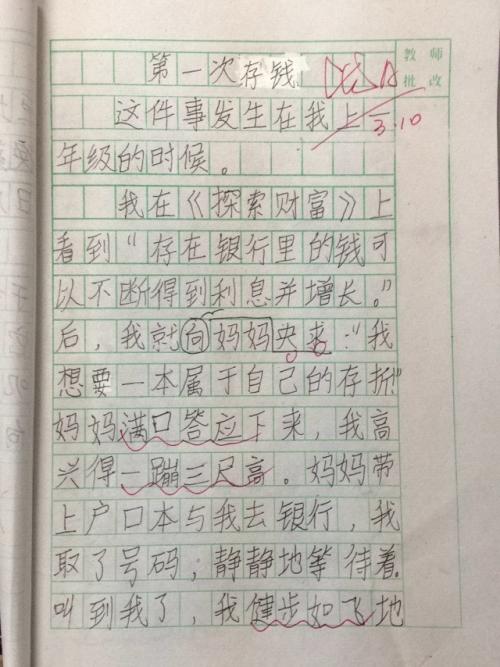 第一次存钱
教师
批改
这件事发生在我上一
3.10
年级的时候。
我在《探索财富》上
看到“存在银行里的钱可
以不断得到利息并增长。”
后，我就向妈妈央求：“我
想要一本属于自己的存折！”
妈妈满口答应下来，我高
兴得一蹦三尺高。妈妈带
上户口本与我去银行，我
取了号码，静静地等待着
叫到我了，我健步如飞地